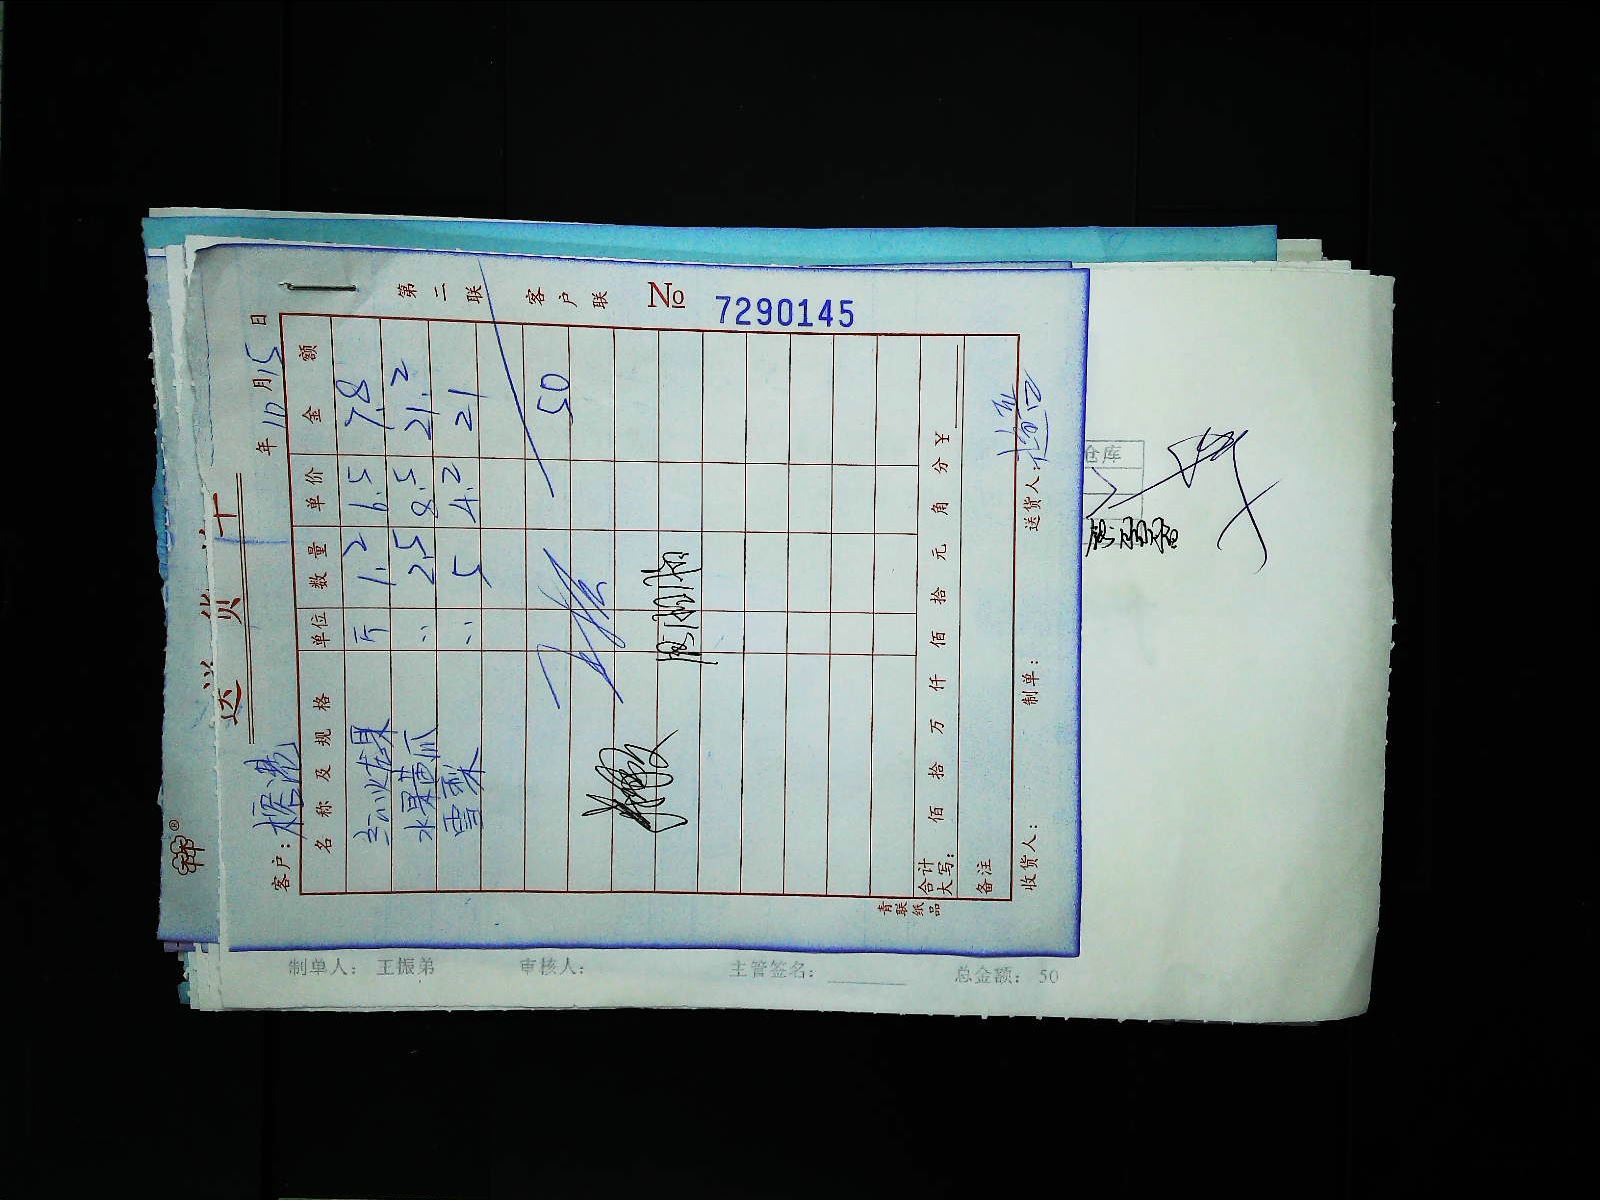 送货单
第二联 客户联 № 7290145
客户: 年10月15日
名称及规格 单位 数量 单价 金额
火龙果 斤 1.2 6.5 7.8
水果黄瓜 〃 2.5 8.5 21.2
雪梨 〃 5 4.2 21
50
合计大写: 佰 拾 万 仟 佰 拾 元 角 分 ¥
备注
收货人: 制单: 送货人:
青联纸品
仓库
制单人: 王振弟 审核人: 主管签名: 总金额: 50